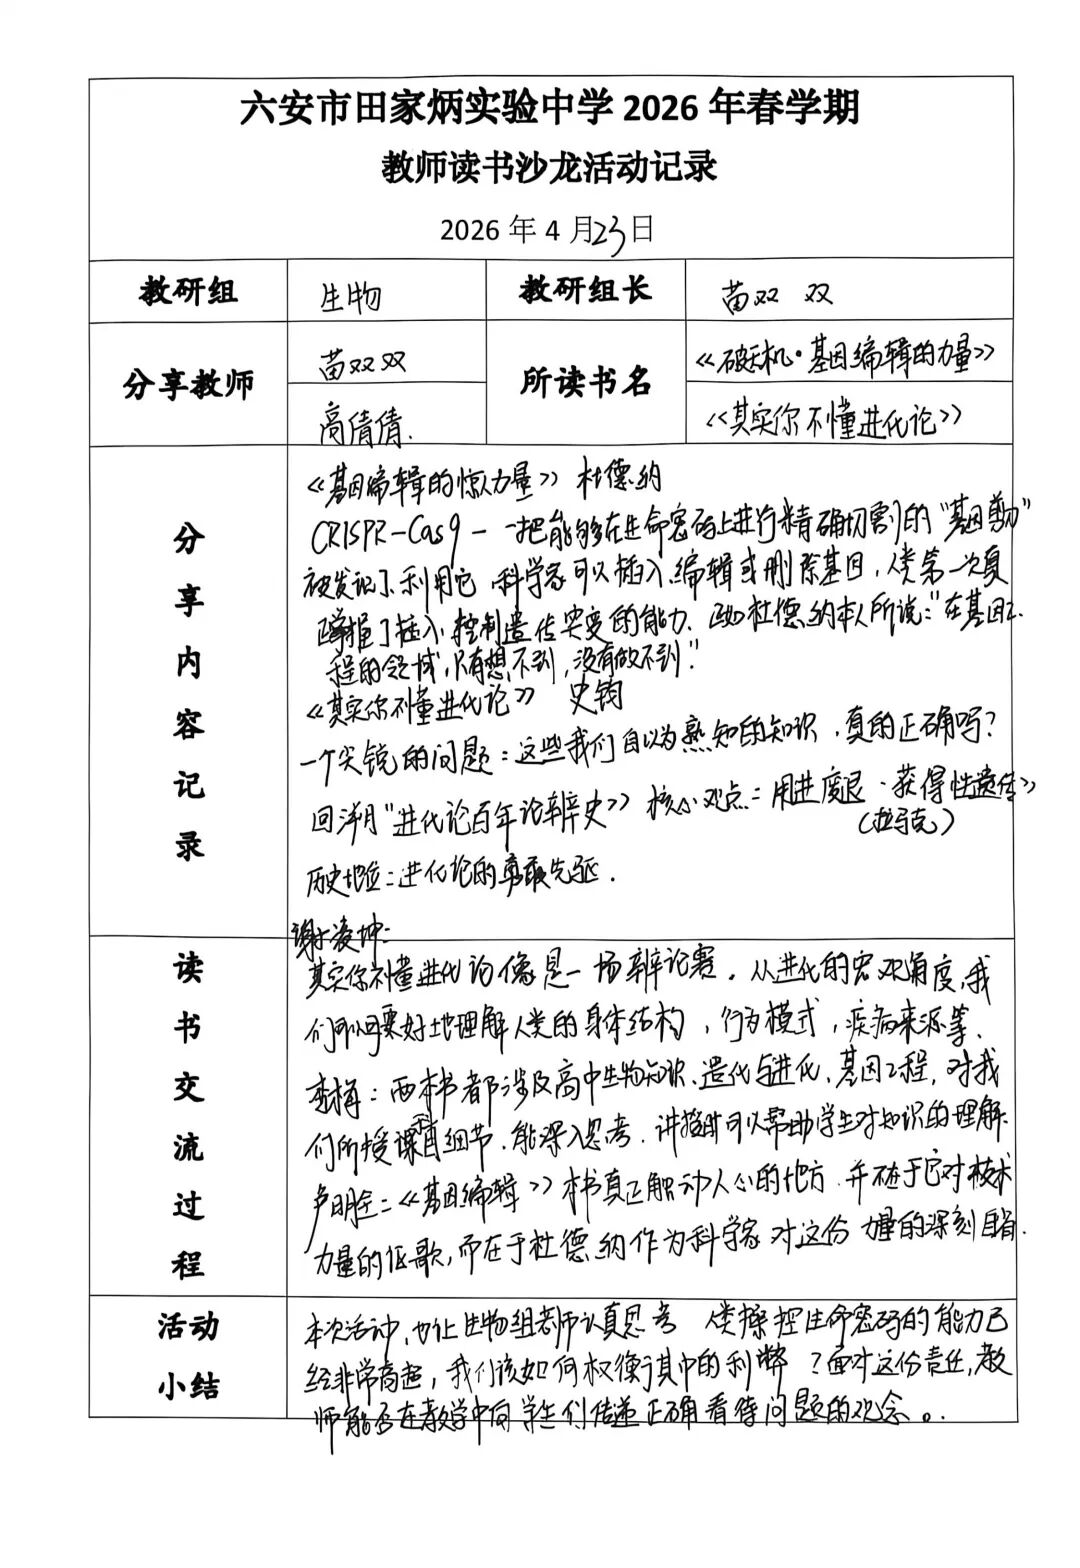 六安市田家炳实验中学 2026 年春学期
教师读书沙龙活动记录
2026 年 4 月 23 日
教研组 生物 教研组长 苗双双
分享教师 苗双双 所读书名 《破天机·基因编辑的力量》
高倩倩. 《其实你不懂进化论》
分享内容记录
《基因编辑的惊人力量》 杜德纳
CRISPR-Cas9 - 一把能够在生命密码上进行精确切割的“基因剪刀”
被发现了、利用它,科学家可以插入、编辑或删除基因,人类第一次真
正掌握了插入、控制遗传突变的能力. 正如杜德纳本人所说:“在基因工
程的领域,只有想不到,没有做不到.”
《其实你不懂进化论》 史钧
一个尖锐的问题:这些我们自以为熟知的知识,真的正确吗?
回溯“进化论百年论辩史》 核心观点:用进废退·获得性遗传》
(拉马克)
历史地位:进化论的勇敢先驱.
读书交流过程
谢凌坤:
其实你不懂进化论像是一场辩论赛. 从进化的宏观角度,我
们可以更好地理解人类的身体结构,行为模式,疾病来源等.
李梅:两本书都涉及高中生物知识、遗传与进化、基因工程,对我
们所授课的细节、能深入思考. 讲授时可以帮助学生对知识的理解.
卢明全:《基因编辑》本书真正触动人心的地方,并不在于它对技术
力量的讴歌,而在于杜德纳作为科学家对这份力量的深刻自省.
活动小结
本次活动,也让生物组老师认真思考 人类操控生命密码的能力已
经非常高超,我们该如何权衡其中的利弊?面对这份责任,教
师能否在教学中向学生们传递正确看待问题的观念。.